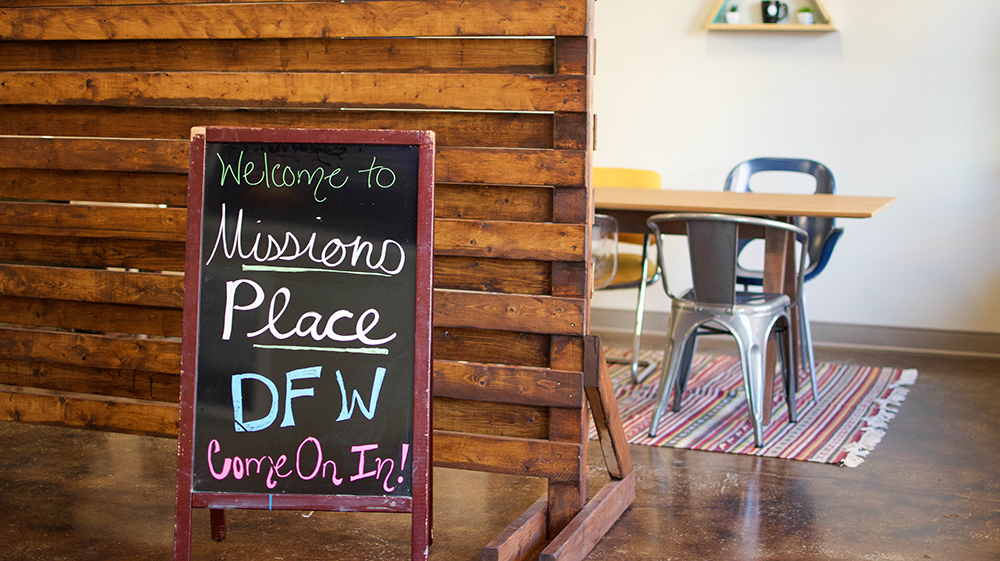 Welcome to
Missions
Place
DFW
Come On In!